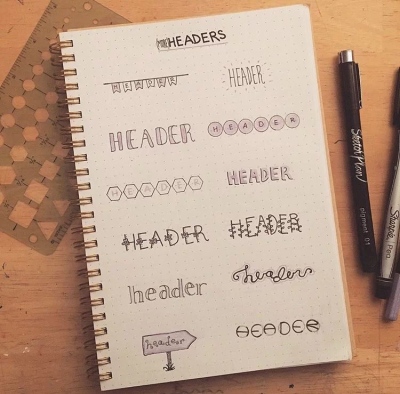 HEADERS
HEADER
HEADER
HEADER
HEADER
HEADER
HEADER
HEADER
HEADER
header
headers
header
HEADER
pigment 01
Pen